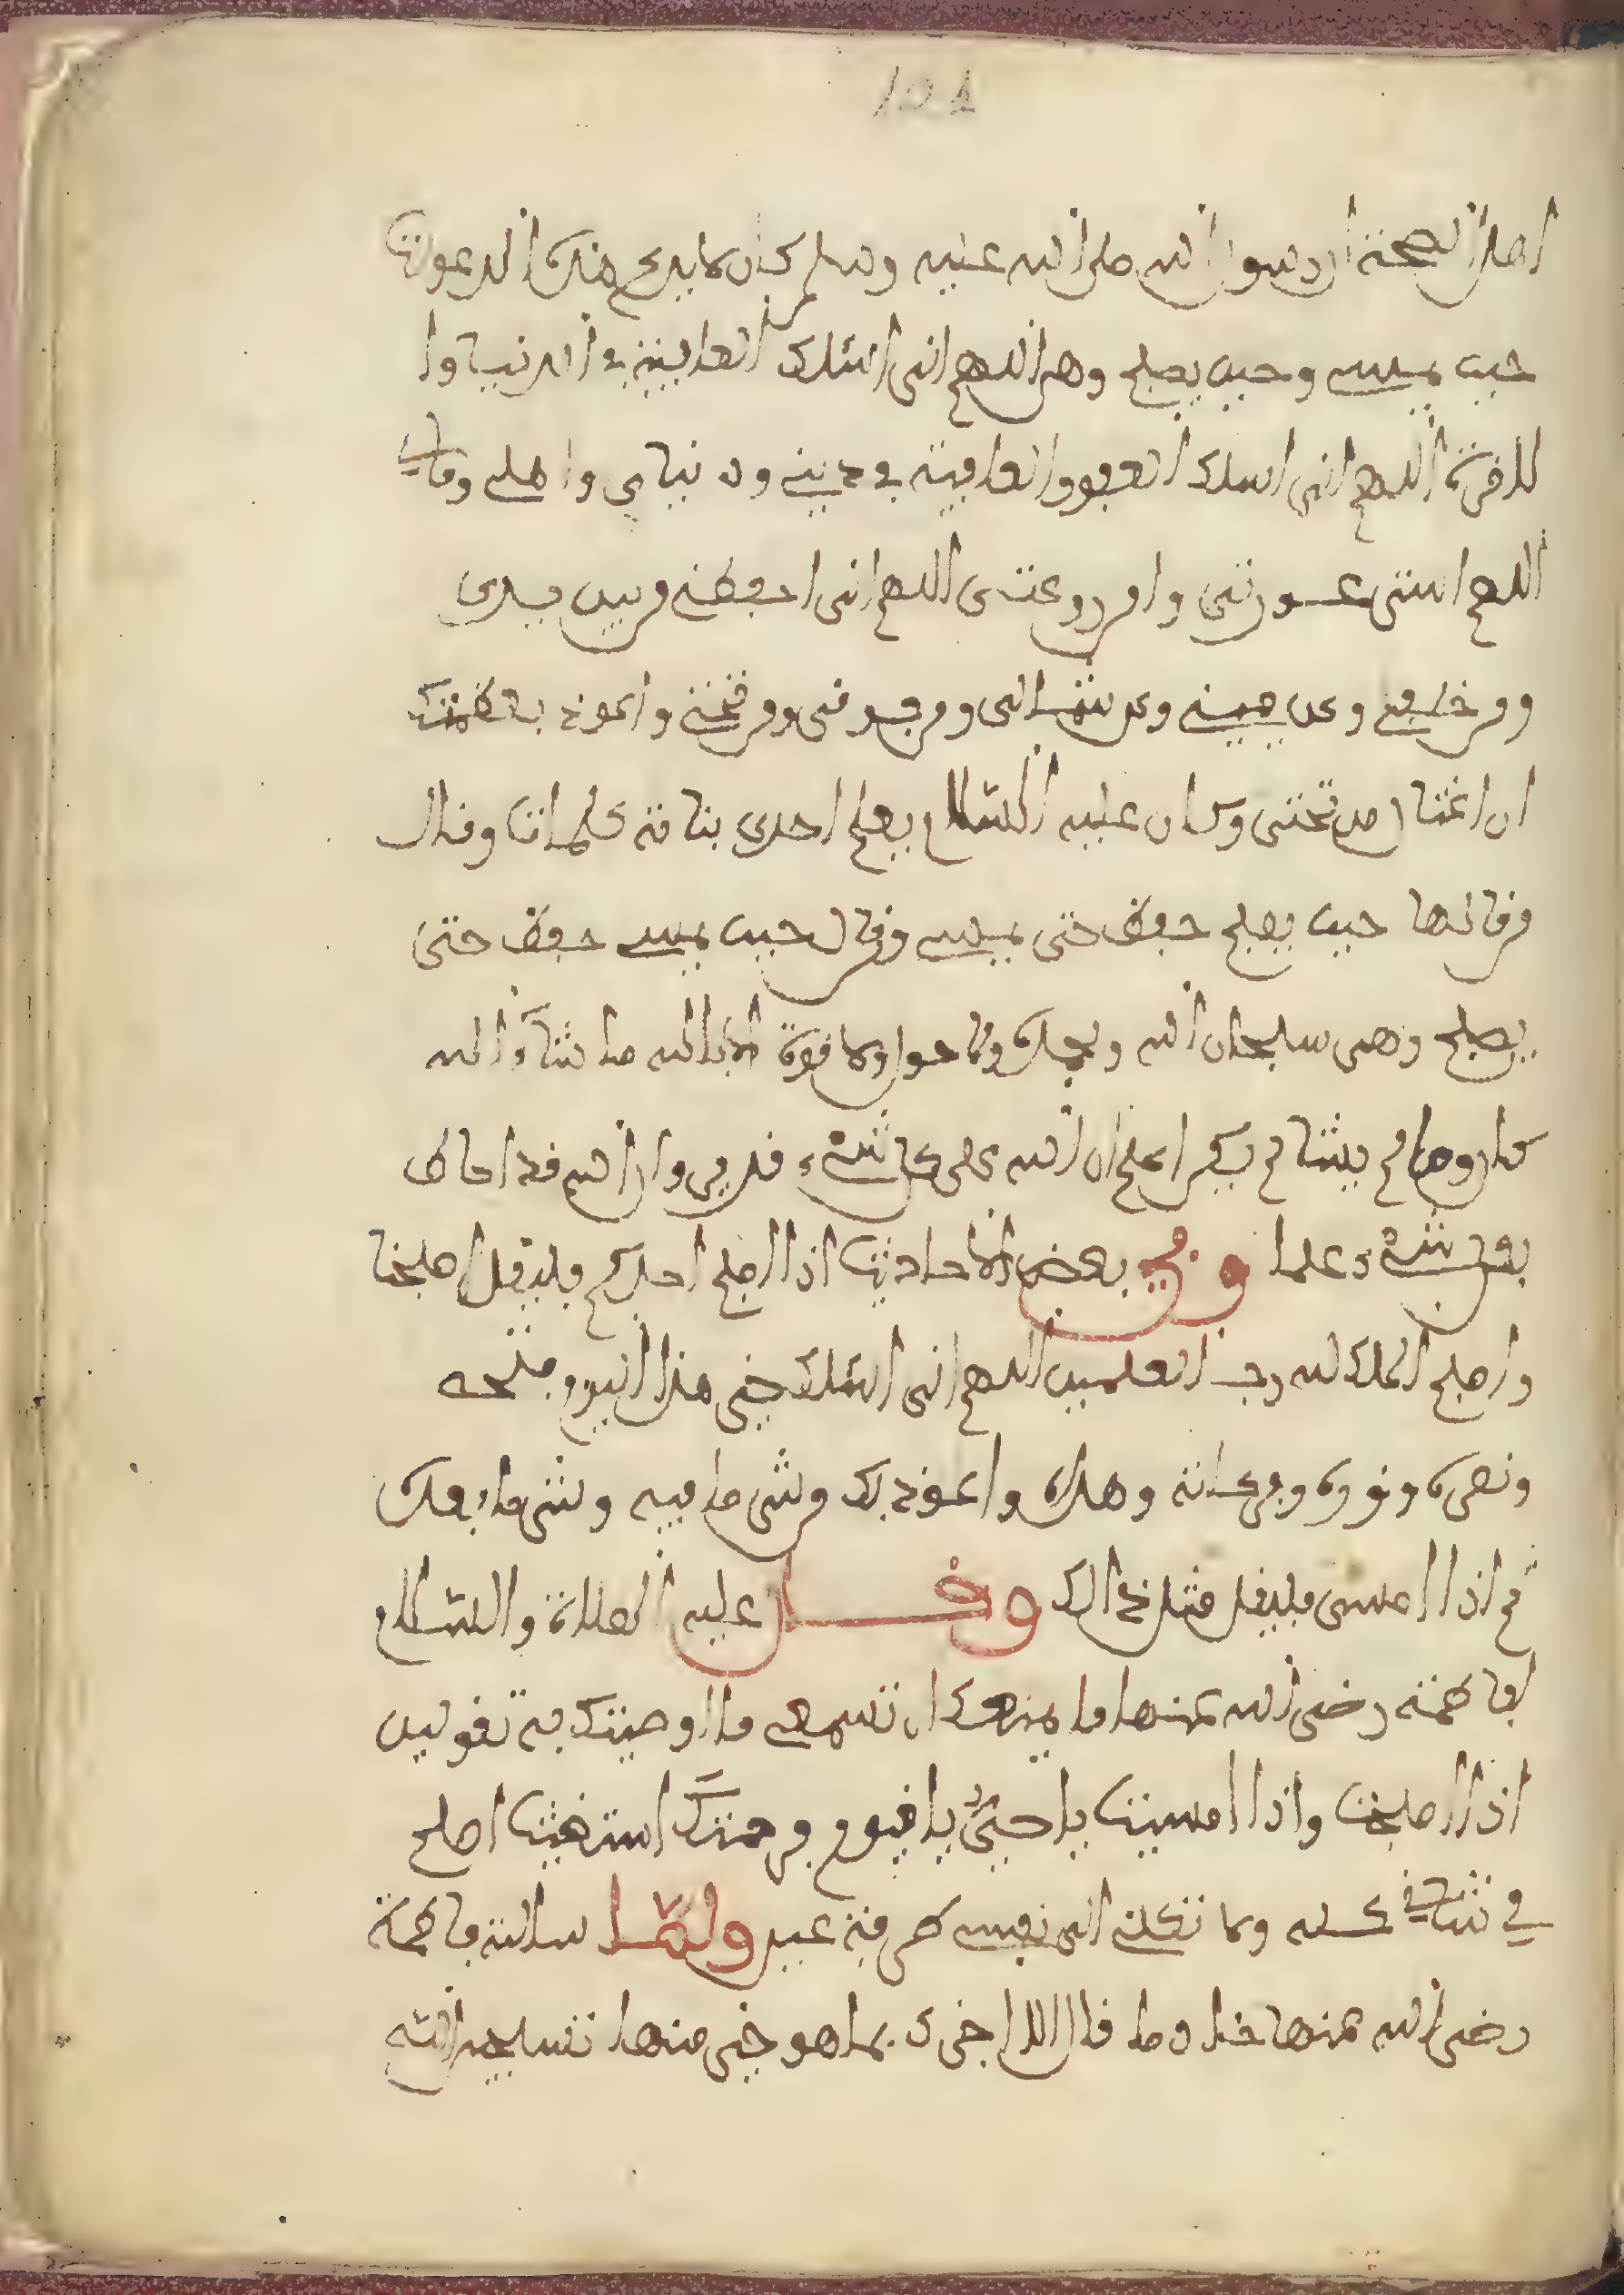 101
اهل الصحة ان رسول الله صلى الله عليه وسلم كان لا يدع هذه الدعوات
حين يمسى وحين يصبح وهى اللهم انى اسئلك العافية في الدنيا وا
للاخرة اللهم انى اسلك العفو والعافية في دينى ودنياي واهلى ومالى
اللهم استر عورتى وامن روعتى اللهم انى احفظنى من بين يدى
ومن خلفى وعن يمينى وعن شمالى ومن فوقى ومن تحتى واعوذ بعظمتك
ان اغتال من تحتى وكان عليه السلام يعلم احدى بناته كلمات وقال
من قالها حين يصبح حفظ حتى يمسى ومن قال حين يمسى حفظ حتى
يصبح وهى سبحان الله وبحمده ولا حول ولا قوة الا بالله ما شاء الله
كان وما لم يشا لم يكن اعلم ان الله على كل شىء قدير وان الله قد احاط
بكل شىء علما وفي بعض الاحاديث اذا اصبح احدكم فليقل اصبحنا
واصبح الملك لله رب العلمين اللهم انى اسئلك خير هذا اليوم فتحه
ونصره ونوره وبركاته وهداه واعوذ بك من شر ما فيه وشر ما بعده
ثم اذا امسى فليقل مثل ذالك وقال عليه الصلاة والسلام
لفاطمة رضى الله عنها ما يمنعك ان تسمعى ما اوصيتك به تقولين
اذا اصبحت واذا امسيت يا حيُّ يا قيوم برحمتك استغيث اصلح
لي شانى كله ولا تكلنى الى نفسى طرفة عين ولما سالته فاطمة
رضى الله عنها خادما قال الا اخبرك بما هو خير منها تسبحين الله